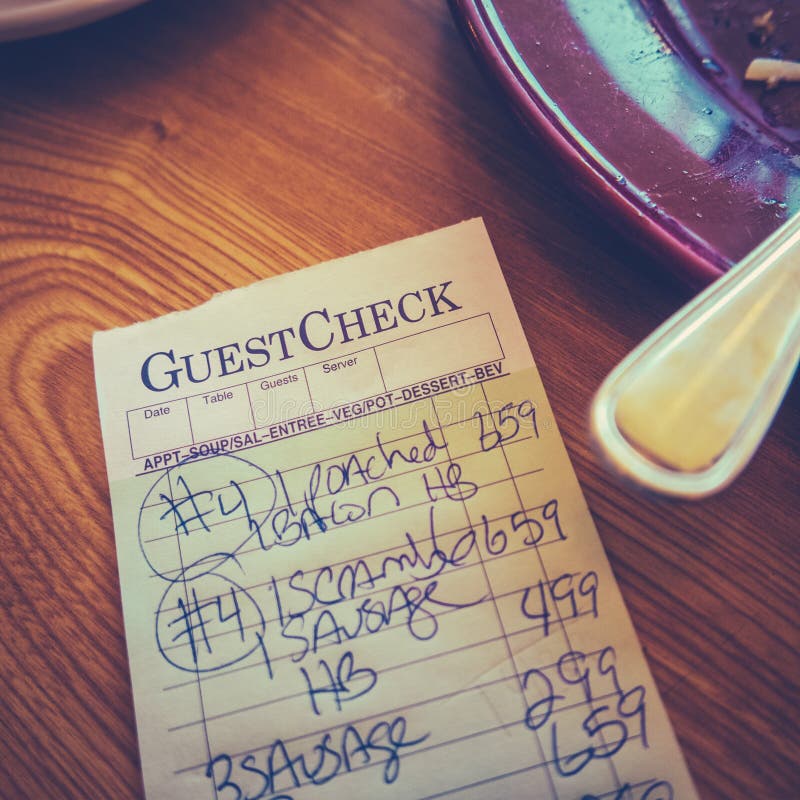 GUESTCHECK
Date Table Guests Server
APPT-SOUP/SAL-ENTREE-VEG/POT-DESSERT-BEV
#4 1 POACHED 659
1 BACON HB
#4 1 SCRAMble 659
1 SAUSAGE 499
HB
299
3 SAUSAGE 659